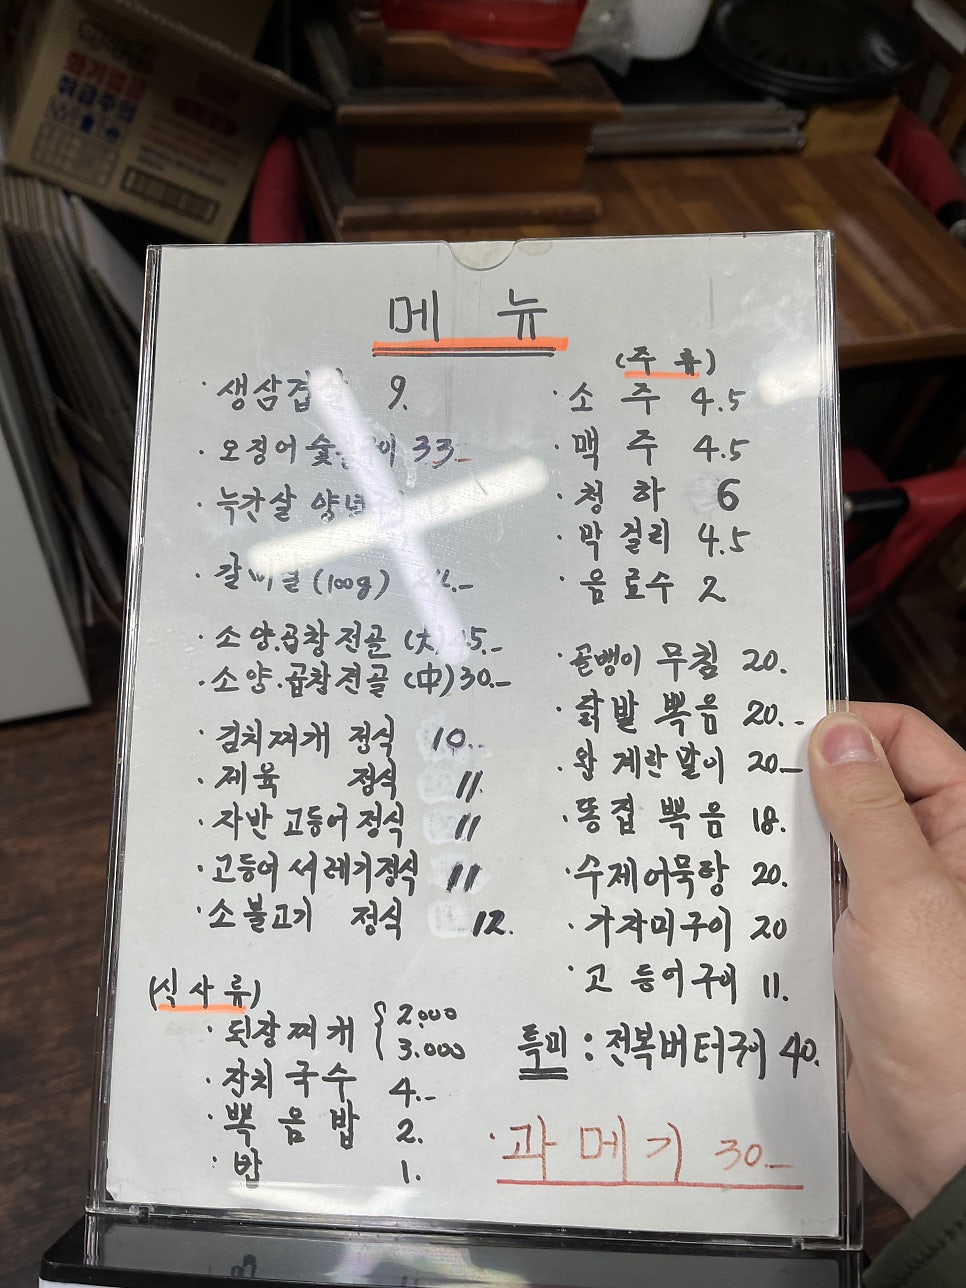 취급주의
메 뉴
· 생삼겹 9.
· 오징어 33.-
· 갈 (100g)
· 소양.곱창 전골 (大) 5.-
· 소양.곱창 전골 (中) 30.-
· 김치찌개 정식 10.-
· 제육 정식 11.
· 자반 고등어 정식 11
· 고등어 시레기정식 11
· 소불고기 정식 12.
(식사류)
· 된장찌개 { 2.000
3.000
· 잔치국수 4.-
· 볶음밥 2.
· 밥 1.
(주류)
· 소주 4.5
· 맥주 4.5
· 청하 6
· 막걸리 4.5
· 음료수 2
· 골뱅이 무침 20.
· 닭발 볶음 20.-
· 왕 계란말이 20-
· 똥집 볶음 18.
· 수제어묵탕 20.
· 가자미구이 20
· 고등어구이 11.
특미 : 전복버터구이 40.
· 과메기 30-